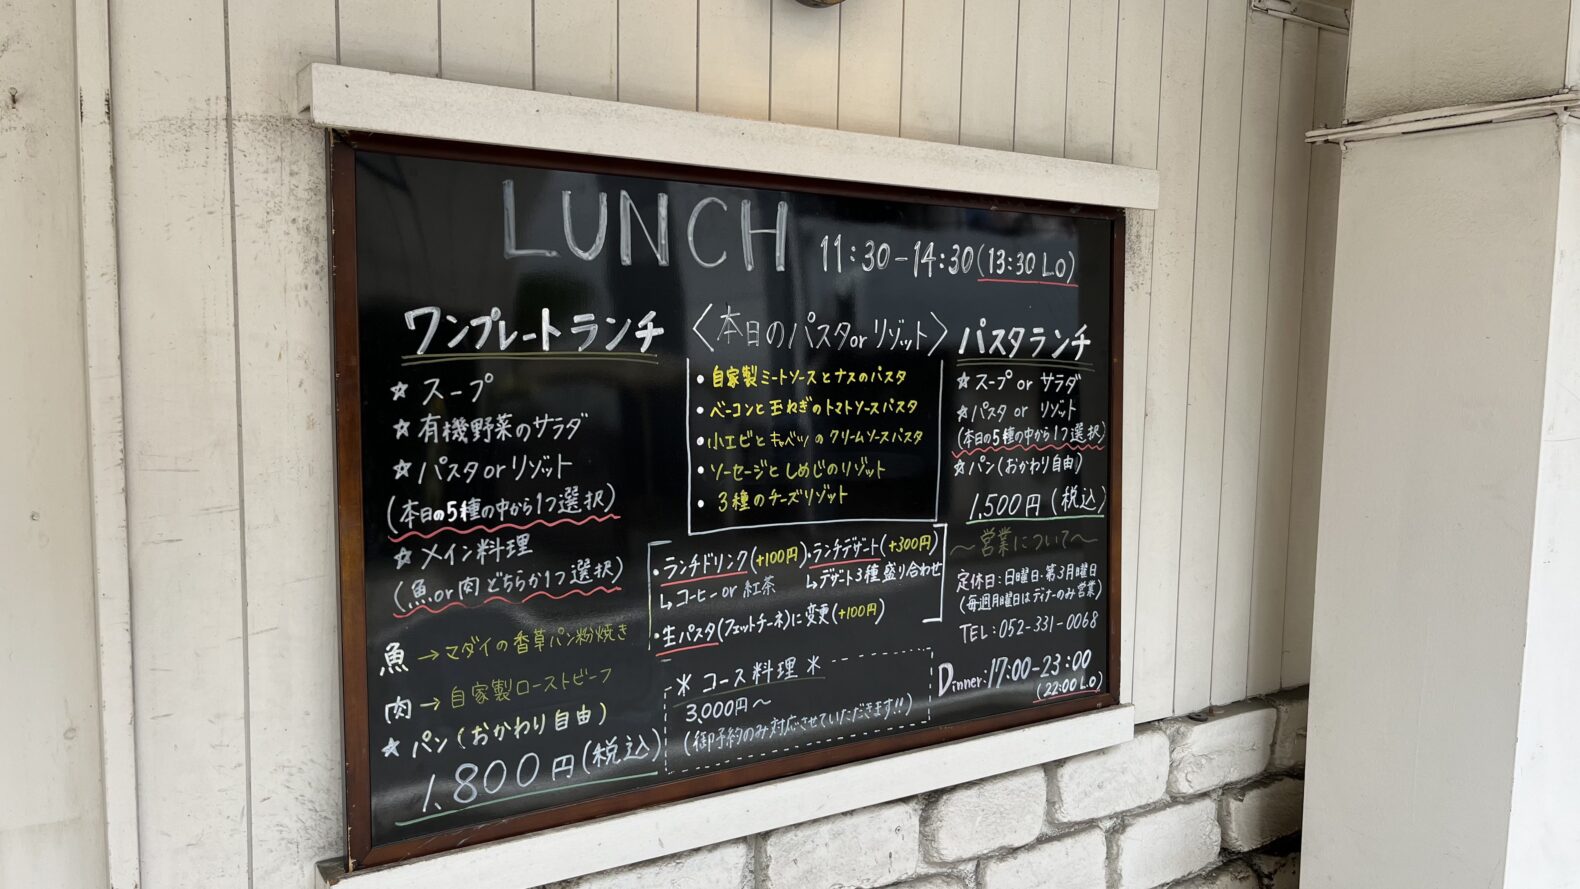 LUNCH 11:30-14:30(13:30 LO)
ワンプレートランチ
☆ スープ
☆ 有機野菜のサラダ
☆ パスタorリゾット
(本日の5種の中から1つ選択)
☆ メイン料理
(魚or肉どちらか1つ選択)
魚→マダイの香草パン粉焼き
肉→自家製ローストビーフ
★ パン(おかわり自由)
1,800円(税込)
〈本日のパスタorリゾット〉
・自家製ミートソースとナスのパスタ
・ベーコンと玉ねぎのトマトソースパスタ
・小エビとキャベツのクリームソースパスタ
・ソーセージとしめじのリゾット
・3種のチーズリゾット
・ランチドリンク(+100円)・ランチデザート(+300円)
↳コーヒーor紅茶 ↳デザート3種盛り合わせ
・生パスタ(フェットチーネ)に変更(+100円)
＊コース料理＊
3,000円〜
(御予約のみ対応させていただきます!!)
パスタランチ
☆ スープorサラダ
☆パスタ or リゾット
(本日の5種の中から1つ選択)
☆パン(おかわり自由)
1,500円(税込)
〜営業について〜
定休日:日曜日・第3月曜日
(毎週月曜日はディナーのみ営業)
TEL:052-331-0068
Dinner:17:00-23:00
(22:00 L.O)